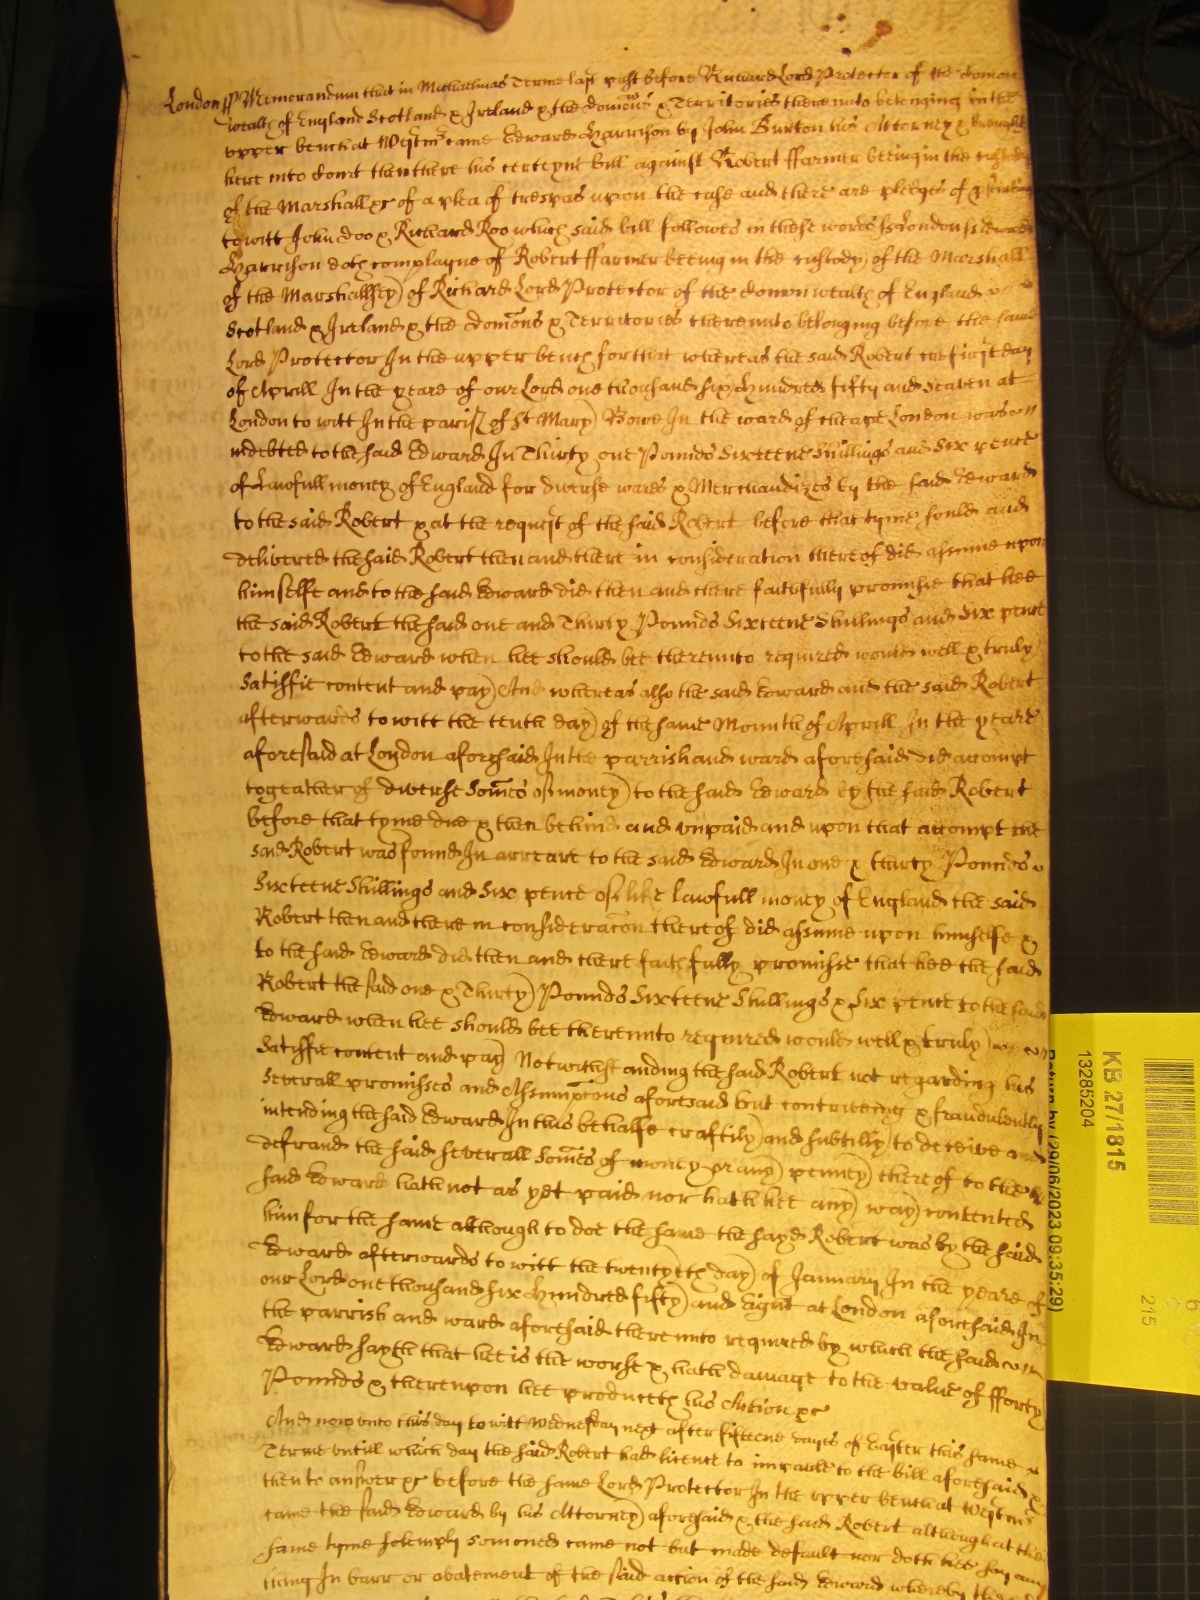 London ss Memorandum that in Michaelmas Terme last past before Richard Lord Protector of the Comon
wealth of England Scotland & Ireland & the Domōns & Territories thereunto belonging in the
upper bench at Westmr came Edward Harrison by John Burton his Attorney & brought
here into Court then there his certeyne bill against Robert ffarmer beeing in the custody
of the Marshall &c of a plea of trespas upon the case and there are pledges of
to witt John Doo & Richard Roo which said bill followes in these words ss London ss Edward
Harrison doth complayne of Robert ffarmer beeing in the custody of the Marshall
of the Marshallsey of Richard Lord Protector of the Comonwealth of England
Scotland & Ireland & the Domōns & Territories thereunto belonging before the said
Lord Protector In the upper bench for that whereas the said Robert the first day
of Aprill In the yeare of our Lord one thousand six Hundred fifty and Seaven at
London to witt In the parish of St Mary Bowe In the ward of Cheape London was
indebted to the said Edward In Thirty one Pounds Sixteene Shillings and Six pence
of Lawfull money of England for diverse wares & Merchandizes by the said Edward
to the said Robert & at the request of the said Robert before that tyme sould and
delivered the said Robert then and there in consideration thereof did assume upon
himselfe and to the said Edward did then and there faithfully promise that hee
the said Robert the said one and Thirty Pounds Sixteene Shillings and Six pence
to the said Edward when hee should bee thereunto required would well & truly
Satisfie content and pay And whereas also the said Edward and the said Robert
afterwards to witt the tenth day of the same Mounth of Aprill In the yeare
aforesaid at London aforesaid In the parrish and ward aforesaid did accompt
togeather of diverse Somēs of money to the said Edward by the said Robert
before that tyme due & then behind and unpaid and upon that accompt the
said Robert was found In arreare to the said Edward In one & thirty Pounds
Sixteene Shillings and Six pence of like lawfull money of England the said
Robert then and there in consideracōn thereof did assume upon himselfe &
to the said Edward did then and there faithfully promisse that hee the said
Robert the said one & Thirty Pounds Sixteene Shillings & Six pence to the said
Edward when hee should bee thereunto required would well & truly
Satisfie content and pay Notwithstanding the said Robert not regarding his
Severall promisses and Assumpc̄ons aforesaid but contriveing & fraudulently
intending the said Edward In this behalfe craftily and subtilly to deceive and
defraud the said severall Somēs of money or any penney thereof to the
said Edward hath not as yet paid nor hath hee any way contented
him for the same although to doe the same the sayd Robert was by the said
Edward afterwards to witt the twentyeth day of January In the yeare of
our Lord one thousand six Hundred fifty and Eight at London aforesaid In
the parrish and ward aforesaid thereunto required by which the said
Edward sayth that hee is the worse & hath damage to the value of fforty
Pounds & thereupon hee produceth his Action &c
And now unto this day to witt Wednesday next after fifteene dayes of Easter this same
Terme untill which day the said Robert had licence to imparle to the bill aforesaid &
then to answer &c before the same Lord Protector In the upper bench at Westmr
came the said Edward by his Attorney aforesaid & the said Robert although at the
same tyme solemply somoned came not but made default nor doth hee say any
thing In barr or abatement of the said action of the said Edward whereby the
KB 27/1815
13285204
Return by (29/06/2023 09:35:29)
215